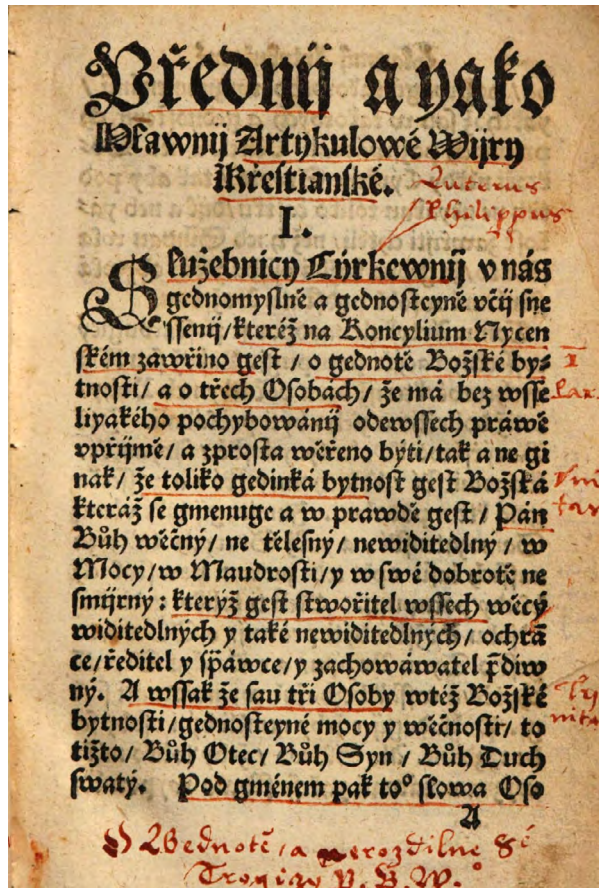 Vřednij a yako
Hlawnij Artykulowé Wijry
Křestianské.
Luterus
Philippus
I.
Služebnicy Cýrkewnij v nás
gednomyslně a gednosteyně včij sne
ssenij/kteréž na Koncylium Nycen
ském zawřino gest / o gednotě Božské by-
tnosti/ a o třech Osobách/ že má bez wsse
liyakého pochybowánij odewssech práwě
vpřijmě/ a zprosta wěřeno býti/tak a ne gi
nak/ že toliko gedinká bytnost gest Božská
kteráž se gmenuge a w prawdě gest / Pán
Bůh wěčný/ ne tělesný/ newiditedlný / w
Mocy/w Maudrosti/y w swé dobrotě ne
smijrný : kterýž gest stwořitel wssech wěcý
widitedlných y také newiditedlných/ ochrā
ce/ředitel y spráwce/y zachowáwatel p̄diw
ný. A wssak že sau tři Osoby wtéž Božské
bytnosti/gednosteyné mocy y wěčnosti/ to
tižto/ Bůh Otec/ Bůh Syn / Bůh Duch
swatý. Pod gménem pak to° slowa Oso
A
O Wednotě/a nerozdilne
Trogizy P. B. W.